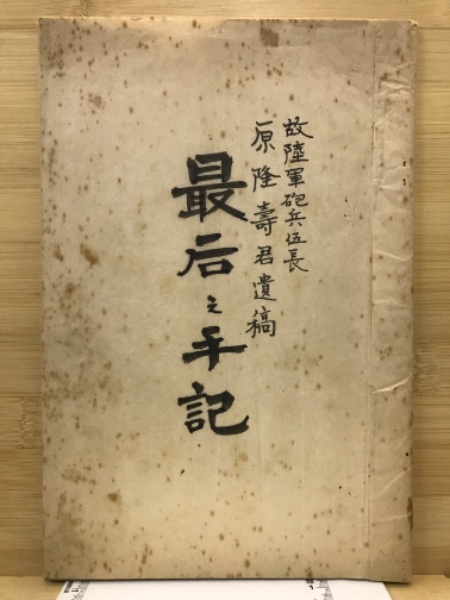 故陸軍砲兵伍長
原隆壽君遺稿
最后之手記